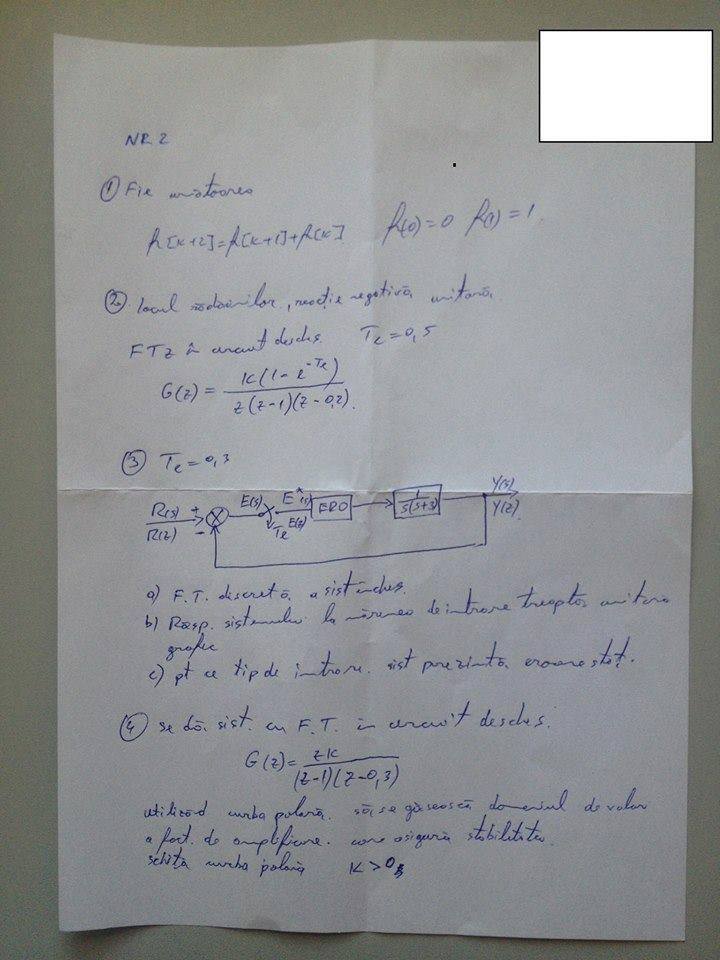 NR 2
① Fie următoarea
f[k+2]=f[k+1]+f[k] f(0)=0 f(1)=1
② locul rădăcinilor, reacție negativă unitară
FTz în circuit deschis. Te=0,5
G(z) = K(1-e^-Te) / z(z-1)(z-0,2)
③ Te=0,3
R(s) + E(s) E*(s) ERO 1/s(s+3) Y(s)
R(z) - Te E(z) Y(z)
a) F.T. discretă a sist închis.
b) Răsp. sistemului la mărimea de intrare treaptă unitară
grafic
c) pt ce tip de intrare. sist prezintă eroare staț.
④ se dă sist. cu F.T. în circuit deschis.
G(z)= zK / (z-1)(z-0,3)
utilizând curba polară. să se găsească domeniul de valori
a fact. de amplificare. care asigură stabilitatea
schița curba polară K>0